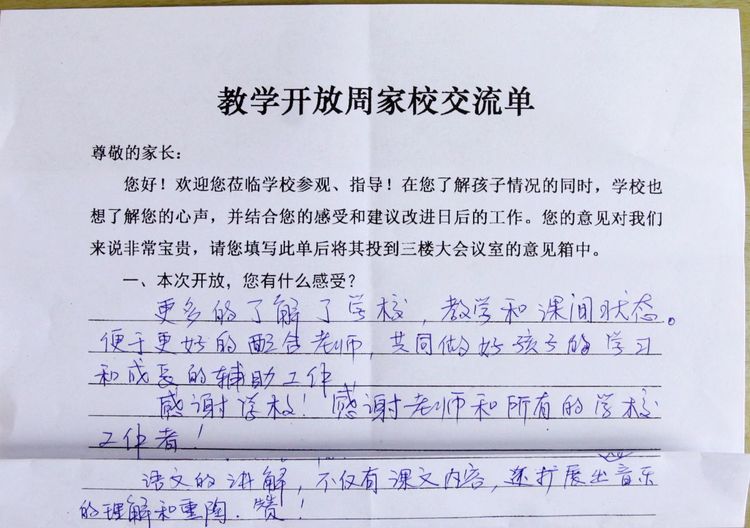 教学开放周家校交流单
尊敬的家长：
您好！欢迎您莅临学校参观、指导！在您了解孩子情况的同时，学校也
想了解您的心声，并结合您的感受和建议改进日后的工作。您的意见对我们
来说非常宝贵，请您填写此单后将其投到三楼大会议室的意见箱中。
一、本次开放，您有什么感受？
更多的了解了学校，教学和课间状态。
便于更好的配合老师，共同做好孩子的学习
和成长的辅助工作！
感谢学校！感谢老师和所有的学校
工作者！
语文的讲解，不仅有课文内容，还扩展出音乐
的理解和熏陶．赞！